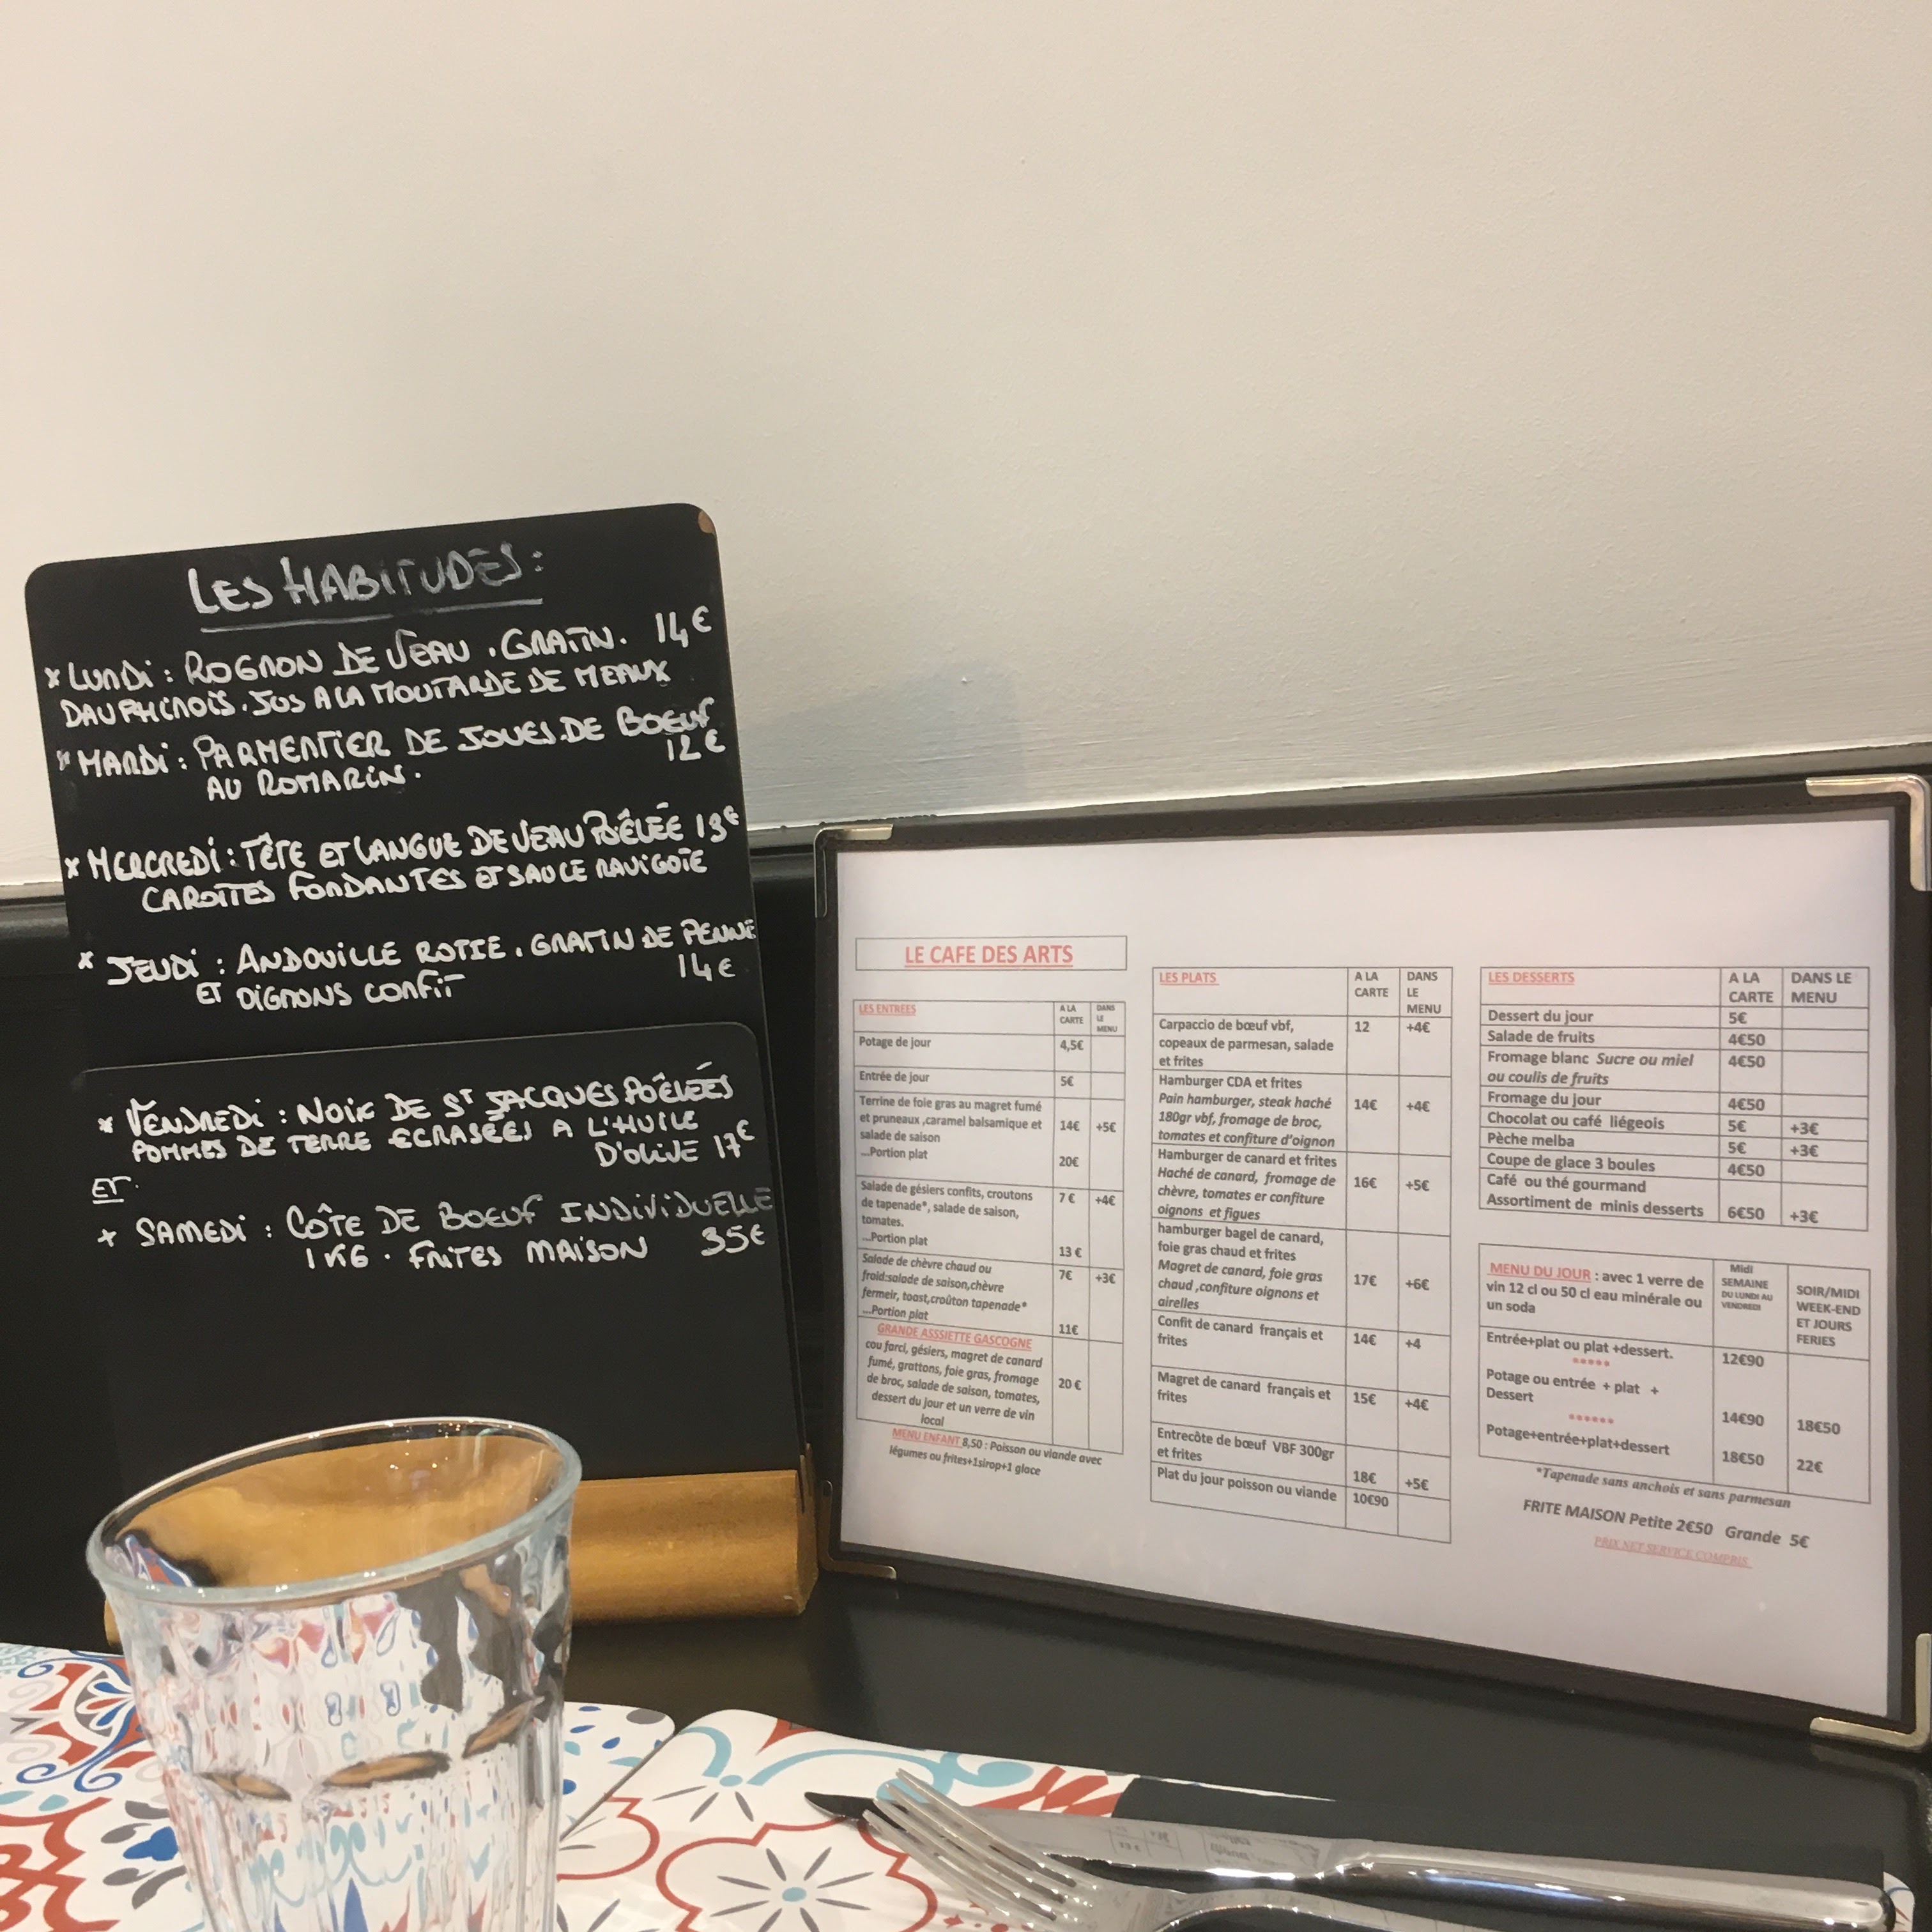 LES HABITUDES:
* LUNDI : ROGNON DE VEAU . GRATIN. 14€
DAUPHINOIS. JUS A LA MOUTARDE DE MEAUX
* MARDI : PARMENTIER DE JOUES DE BOEUF
12€
AU ROMARIN.
* MERCREDI : TÊTE ET LANGUE DE VEAU POÊLÉE 13€
CAROTTES FONDANTES ET SAUCE RAVIGOTE
* JEUDI : ANDOUILLE ROTIE . GRATIN DE PENNE
ET OIGNONS CONFIT 14€
* VENDREDI : NOIX DE ST JACQUES POÊLÉES
POMMES DE TERRE ECRASÉES A L'HUILE
D'OLIVE 17€
ET.
+ SAMEDI : CÔTE DE BOEUF INDIVIDUELLE
1KG . FRITES MAISON 35€
LE CAFE DES ARTS
LES ENTREES A LA CARTE DANS LE MENU
Potage de jour 4,5€
Entrée de jour 5€
Terrine de foie gras au magret fumé
et pruneaux ,caramel balsamique et 14€ +5€
salade de saison
...Portion plat 20€
Salade de gésiers confits, croutons 7 € +4€
de tapenade*, salade de saison,
tomates.
...Portion plat 13 €
Salade de chèvre chaud ou 7€ +3€
froid:salade de saison,chèvre
fermeir, toast,croûton tapenade*
...Portion plat 11€
GRANDE ASSSIETTE GASCOGNE
cou farci, gésiers, magret de canard
fumé, grattons, foie gras, fromage 20 €
de broc, salade de saison, tomates,
dessert du jour et un verre de vin
local
MENU ENFANT 8,50 : Poisson ou viande avec
légumes ou frites+1sirop+1 glace
LES PLATS A LA CARTE DANS LE MENU
Carpaccio de bœuf vbf, 12 +4€
copeaux de parmesan, salade
et frites
Hamburger CDA et frites
Pain hamburger, steak haché 14€ +4€
180gr vbf, fromage de broc,
tomates et confiture d'oignon
Hamburger de canard et frites
Haché de canard, fromage de 16€ +5€
chèvre, tomates er confiture
oignons et figues
hamburger bagel de canard,
foie gras chaud et frites
Magret de canard, foie gras 17€ +6€
chaud ,confiture oignons et
airelles
Confit de canard français et 14€ +4
frites
Magret de canard français et 15€ +4€
frites
Entrecôte de bœuf VBF 300gr
et frites 18€ +5€
Plat du jour poisson ou viande 10€90
LES DESSERTS A LA CARTE DANS LE MENU
Dessert du jour 5€
Salade de fruits 4€50
Fromage blanc Sucre ou miel 4€50
ou coulis de fruits
Fromage du jour 4€50
Chocolat ou café liégeois 5€ +3€
Pèche melba 5€ +3€
Coupe de glace 3 boules 4€50
Café ou thé gourmand
Assortiment de minis desserts 6€50 +3€
MENU DU JOUR : avec 1 verre de
vin 12 cl ou 50 cl eau minérale ou
un soda
Midi
SEMAINE
DU LUNDI AU
VENDREDI
SOIR/MIDI
WEEK-END
ET JOURS
FERIES
Entrée+plat ou plat +dessert. 12€90
*****
Potage ou entrée + plat +
Dessert 14€90 18€50
******
Potage+entrée+plat+dessert 18€50 22€
*Tapenade sans anchois et sans parmesan
FRITE MAISON Petite 2€50 Grande 5€
PRIX NET SERVICE COMPRIS